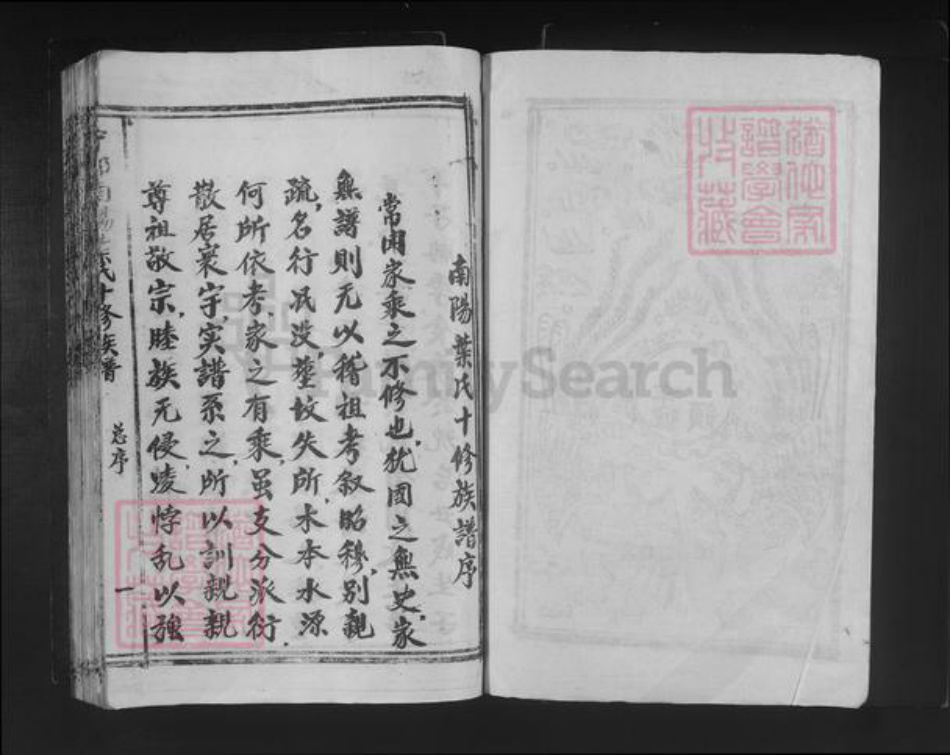 南陽葉氏十修族譜序
常聞家乘之不修也，犹國之無史，家
無譜則无以稽祖考叙昭穆，别親
疏，名行泯没，塋坟失所，木本水源
何所依考，家之有乘，虽支分派衍，
散居寰宇，实譜系之，所以訓親親
尊祖敬宗，睦族无侵凌悖乱以强
氏十修族譜
总序
一
譜學會
收藏
FamilySearch